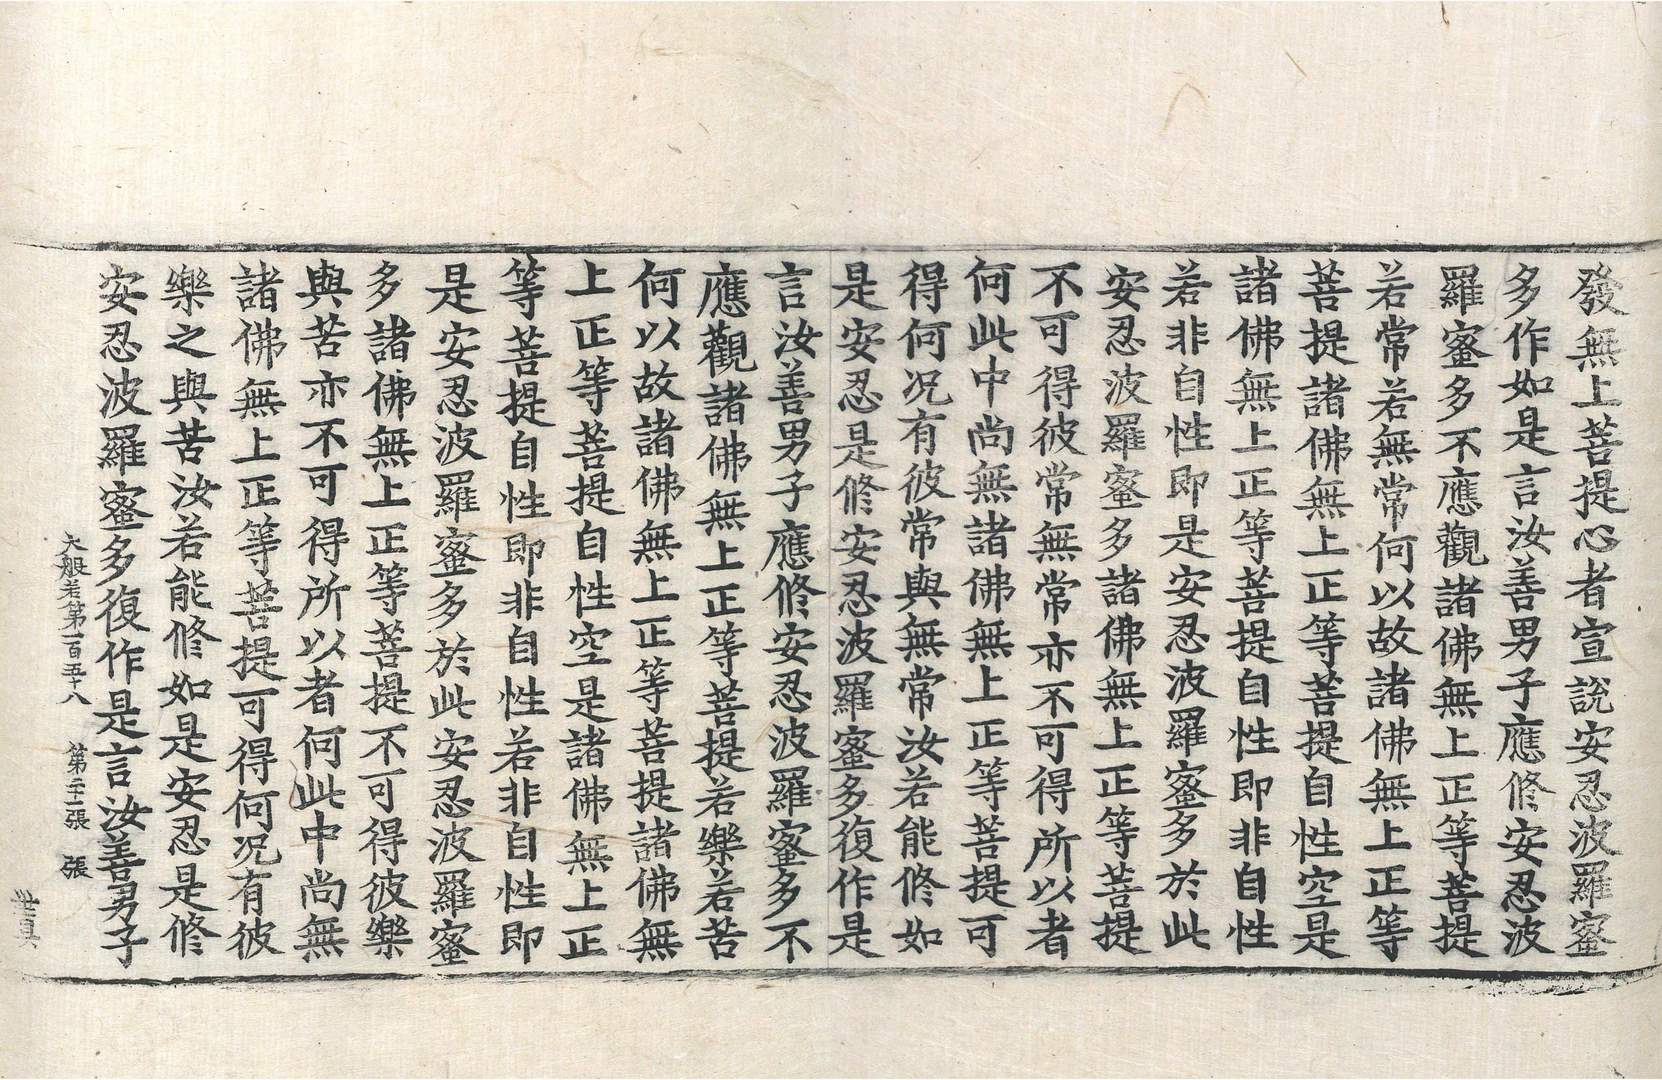 發無上菩提心者宣說安忍波羅蜜
多作如是言汝善男子應修安忍波
羅蜜多不應觀諸佛無上正等菩提
若常若無常何以故諸佛無上正等
菩提諸佛無上正等菩提自性空是
諸佛無上正等菩提自性即非自性
若非自性即是安忍波羅蜜多於此
安忍波羅蜜多諸佛無上正等菩提
不可得彼常無常亦不可得所以者
何此中尚無諸佛無上正等菩提可
得何況有彼常與無常汝若能修如
是安忍是修安忍波羅蜜多復作是
言汝善男子應修安忍波羅蜜多不
應觀諸佛無上正等菩提若樂若苦
何以故諸佛無上正等菩提諸佛無
上正等菩提自性空是諸佛無上正
等菩提自性即非自性若非自性即
是安忍波羅蜜多於此安忍波羅蜜
多諸佛無上正等菩提不可得彼樂
與苦亦不可得所以者何此中尚無
諸佛無上正等菩提可得何況有彼
樂之與苦汝若能修如是安忍是修
安忍波羅蜜多復作是言汝善男子
大般若第一百五十八 第二十一張 張